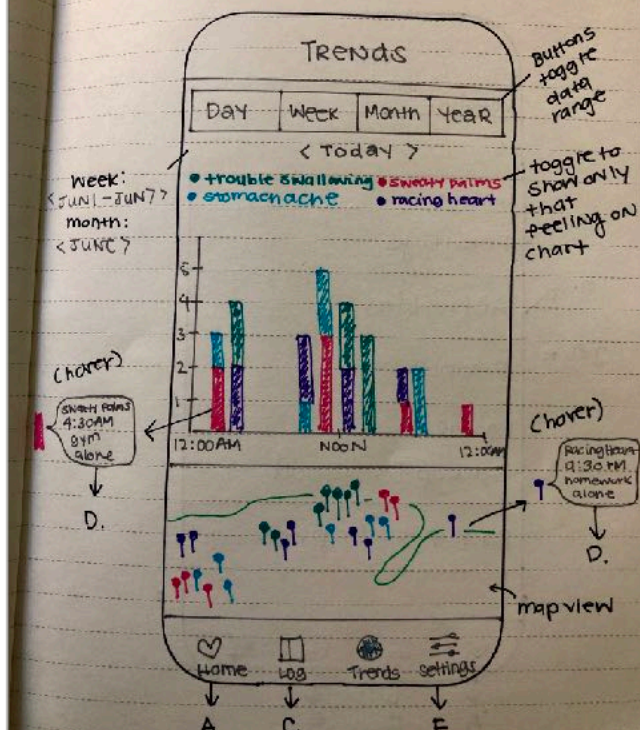 TRENDS
Buttons
toggle
data
range
Day Week Month Year
< Today >
week:
<JUN1-JUN7>
month:
<JUNE>
trouble swallowing sweaty palms
stomachache racing heart
toggle to
show only
that
feeling on
chart
5
4
3
2
1
12:00AM NOON 12:00AM
(hover)
sweaty palms
4:30AM
gym
alone
D.
(hover)
Racing Heart
9:30PM
homework
alone
D.
map view
Home Log Trends Settings
A C E